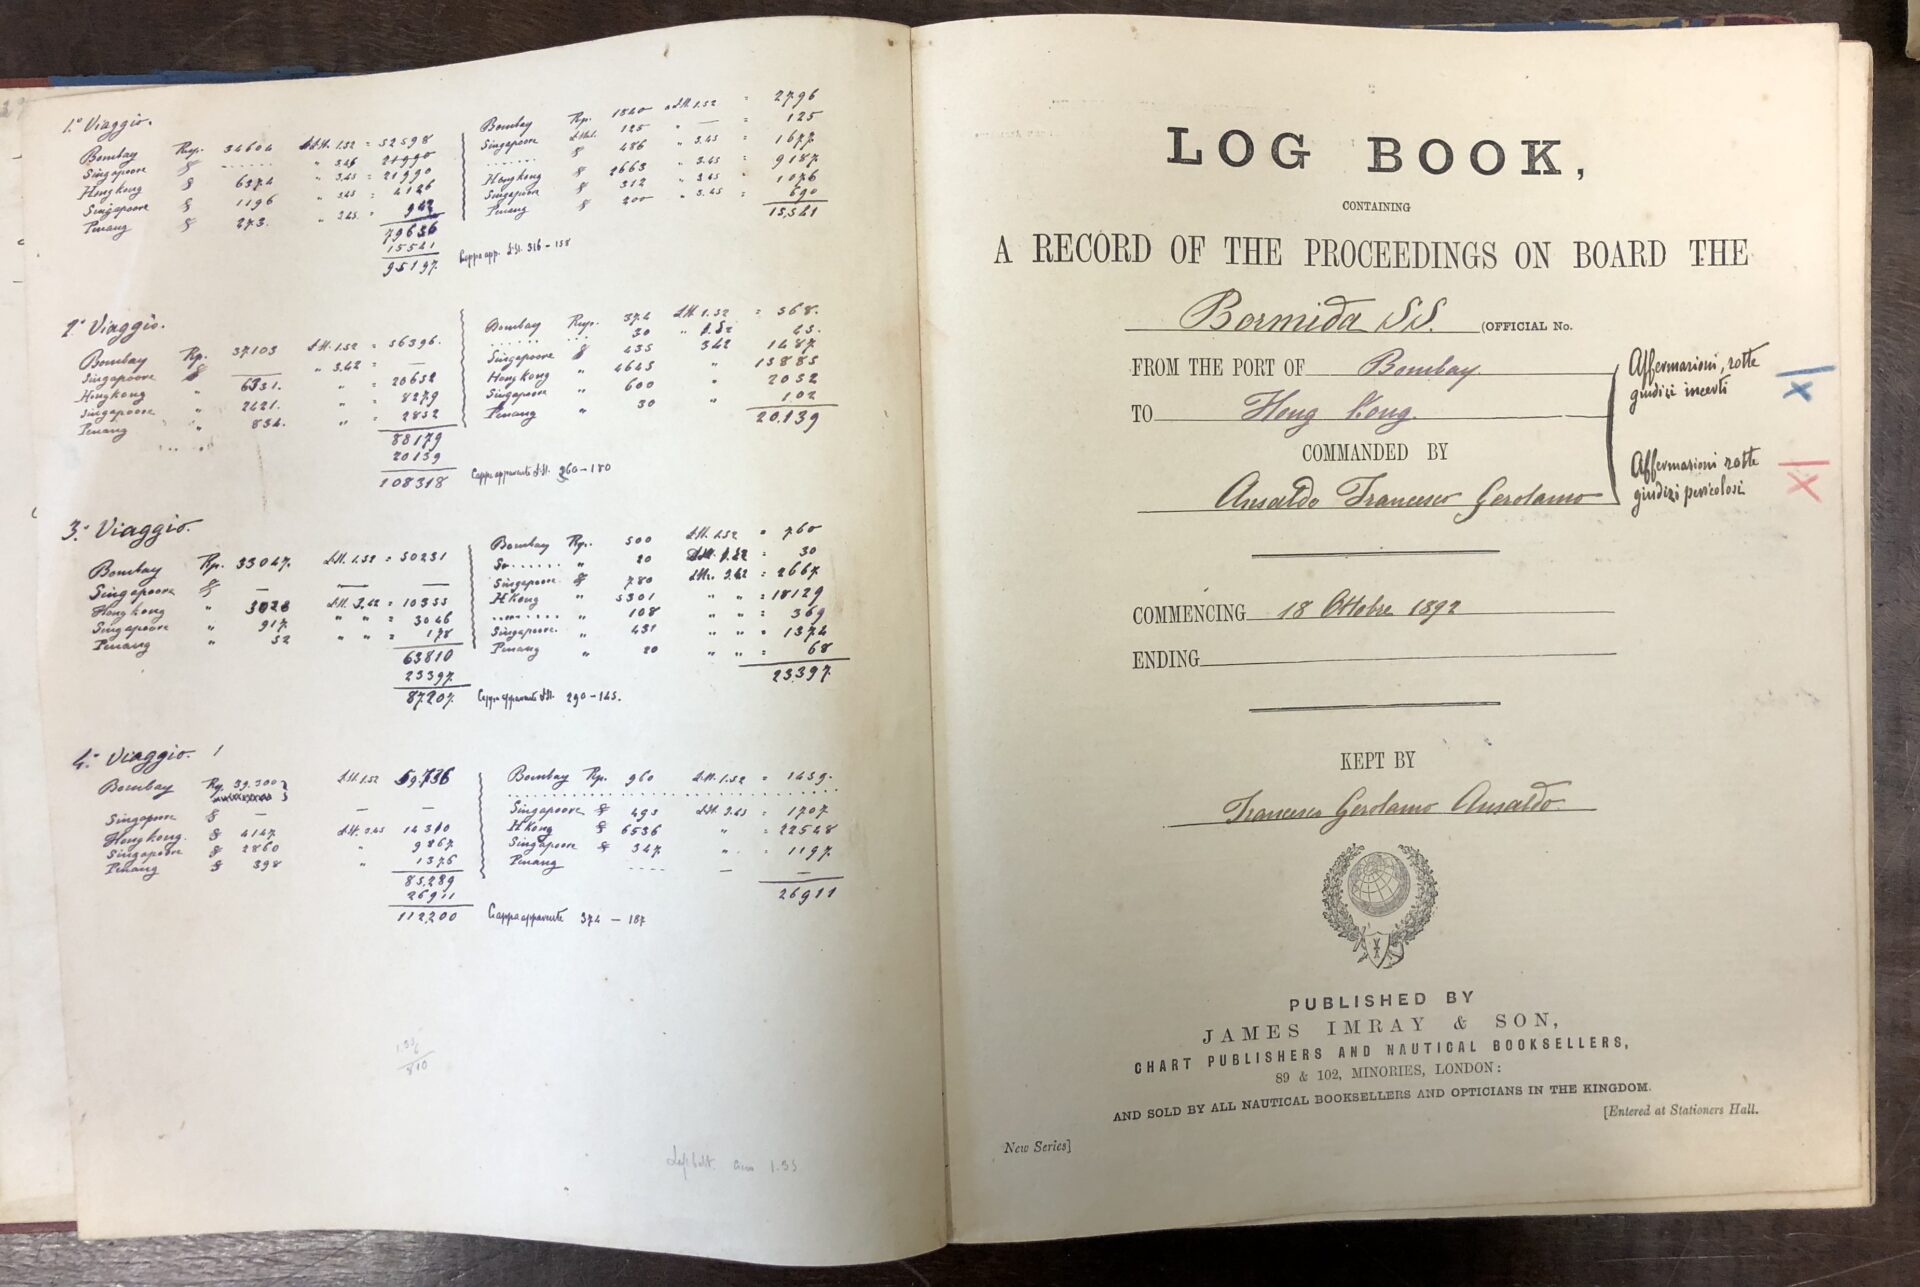 1.º Viaggio.
Bombay Rup. 34604 Lit. 1.52 = 52598
Singapoore $ ....... " 3.45
Hongkong $ 6374 " 3.45 = 21990
Singapoore $ 1196 " 3.45 = 4126
Penang $ 273. " 3.45 = 942
79656
15541
95197.
Bombay Rp. 1840 a Lit. 1.52 = 2796
Singapoore 125 " — = 125
....... $ 486 " 3.45 = 1677
Hongkong $ 2663 " 3.45 = 9187
Singapoore $ 312 " 3.45 = 1076
Penang $ 200 " 3.45 = 690
15,541
Cappa app. Lit. 316 - 158
2º Viaggio.
Bombay Rp. 37103 Lit. 1.52 = 56396.
Singapoore $ —— " 3.42 = —
Hongkong " 6331. " = 20652
Singapoore " 2421. " = 8279
Penang " 834. " = 2852
88179
20139
108318
Bombay Rup. 374 Lit. 1.52 = 568.
....... 30 " 1.52 45.
Singapoore $ 435 3.42 1487
Hongkong " 4645 " 15885
Singapoore " 600 " 2052
Penang " 30 " 102
20,139
Cappa apparente Lit. 360 - 180
3.º Viaggio.
Bombay Rp. 33047. Lit. 1.52 = 50231
Singapoore $ — —— —
Hong kong " 3028 Lit. 3.42 = 10355
Singapoore " 917. " " = 3046
Penang " 52 " " = 178
63810
23397.
87207.
Bombay Rp. 500 Lit. 1.52 = 760
....... " 20 Lit. 1.52 = 30
Singapoore $ 780 Lit. 3.42 = 2667
H Kong " 5301 " " = 18129
....... " 108 " " = 369
Singapoore " 431 " " = 1374
Penang " 20 " " = 68
23397.
Cappa apparente Lit. 290 - 145.
4.º Viaggio.
Bombay Rp. 39.300 Lit 1.52 59,736
Singapoore $ — — —
Hongkong. $ 4147 Lit. 3.45 14310
Singapoore $ 2860 " 9867
Penang $ 398 " 1376
85,289
26911
112,200
Bombay Rp. 960 Lit. 1.52 = 1459.
Singapoore $ 495 Lit. 3.45 = 1707
H Kong $ 6536 " = 22548
Singapoore $ 347 " = 1197.
Penang .... — —
26911
Cappa apparente 374 - 187
810
1.35
LOG BOOK,
CONTAINING
A RECORD OF THE PROCEEDINGS ON BOARD THE
Bormida SS. (OFFICIAL No.
FROM THE PORT OF Bombay
TO Hong Kong.
COMMANDED BY
Ansaldo Francesco Gerolamo
Affermazioni, rotte
giudizi incerti
Affermazioni rotte
giudizi pericolosi
COMMENCING 18 Ottobre 1892
ENDING
KEPT BY
Francesco Gerolamo Ansaldo
PUBLISHED BY
JAMES IMRAY & SON,
CHART PUBLISHERS AND NAUTICAL BOOKSELLERS,
89 & 102, MINORIES, LONDON:
AND SOLD BY ALL NAUTICAL BOOKSELLERS AND OPTICIANS IN THE KINGDOM.
[Entered at Stationers Hall.
New Series]